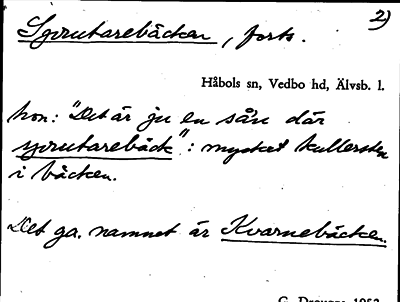 2)
Sgorutarebäcken, forts.
Håbols sn, Vedbo hd, Älvsb. l.
hon: "Det är ju en sån där
gorutarebäck": mycket kullersten
i bäcken.
Det ga. namnet är Kvarnebäcken.